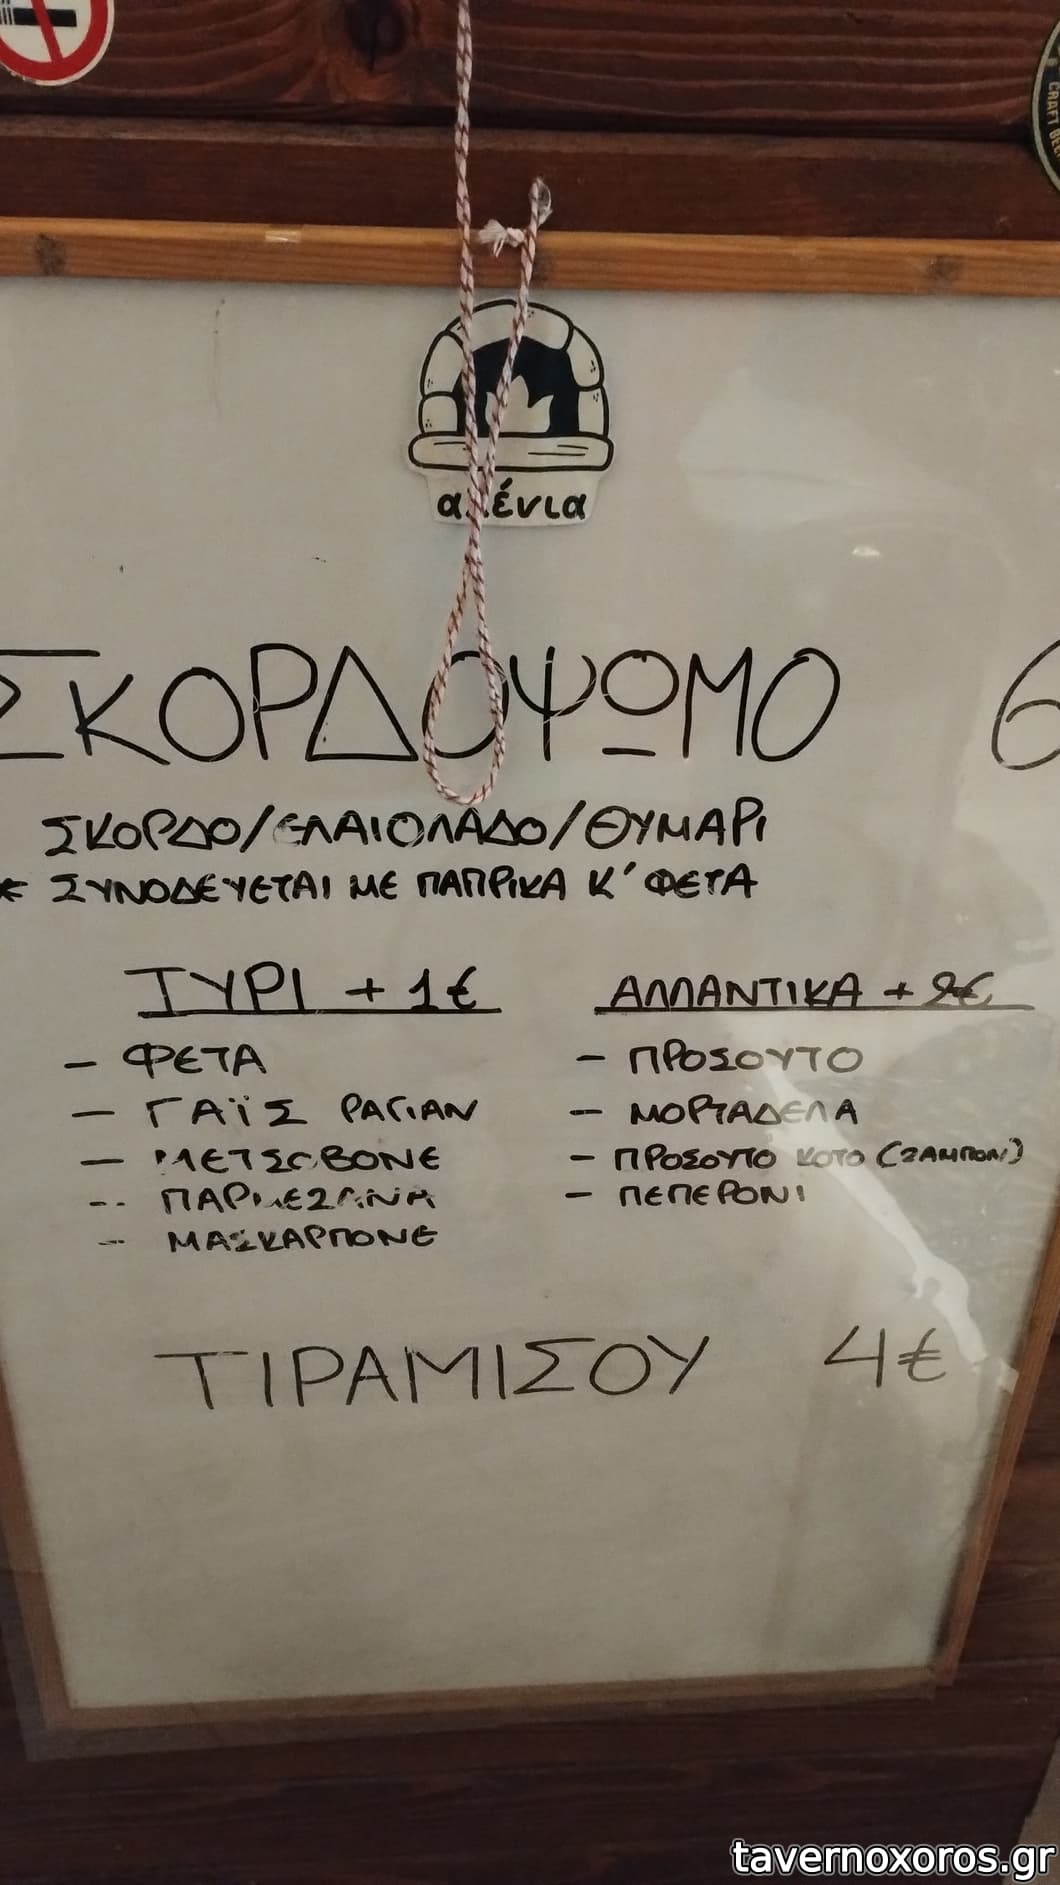 CRAFT
ΣΚΟΡΔΟΨΩΜΟ 6
ΣΚΟΡΔΟ/ΕΛΑΙΟΛΑΔΟ/ΘΥΜΑΡΙ
* ΣΥΝΟΔΕΥΕΤΑΙ ΜΕ ΠΑΠΡΙΚΑ Κ' ΦΕΤΑ
ΤΥΡΙ + 1€
- ΦΕΤΑ
- ΓΑΪΣ ΡΑΓΙΑΝ
- ΜΕΤΣΟΒΟΝΕ
- ΠΑΡΜΕΖΑΝΑ
- ΜΑΣΚΑΡΠΟΝΕ
ΑΛΛΑΝΤΙΚΑ + 2€
- ΠΡΟΣΟΥΤΟ
- ΜΟΡΤΑΔΕΛΑ
- ΠΡΟΣΟΥΤΟ ΚΟΤΟ (ΖΑΜΠΟΝ)
- ΠΕΠΕΡΟΝΙ
ΤΙΡΑΜΙΣΟΥ 4€
tavernoxoros.gr